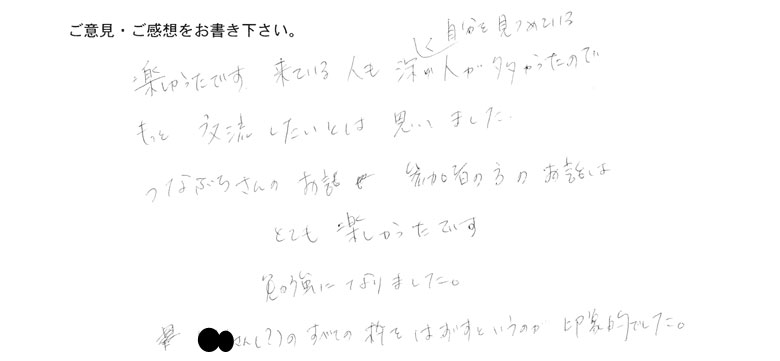 ご意見・ご感想をお書き下さい。
楽しかったです 来ている人も 深く自分を見つめている人が多かったので
もっと 交流したいとは 思いました。
つなぶちさんの お話や 参加者の方の お話は
とても 楽しかったです
勉強に なりました。
さんし?)の すべての 枠を はずすというのが 印象的でした。